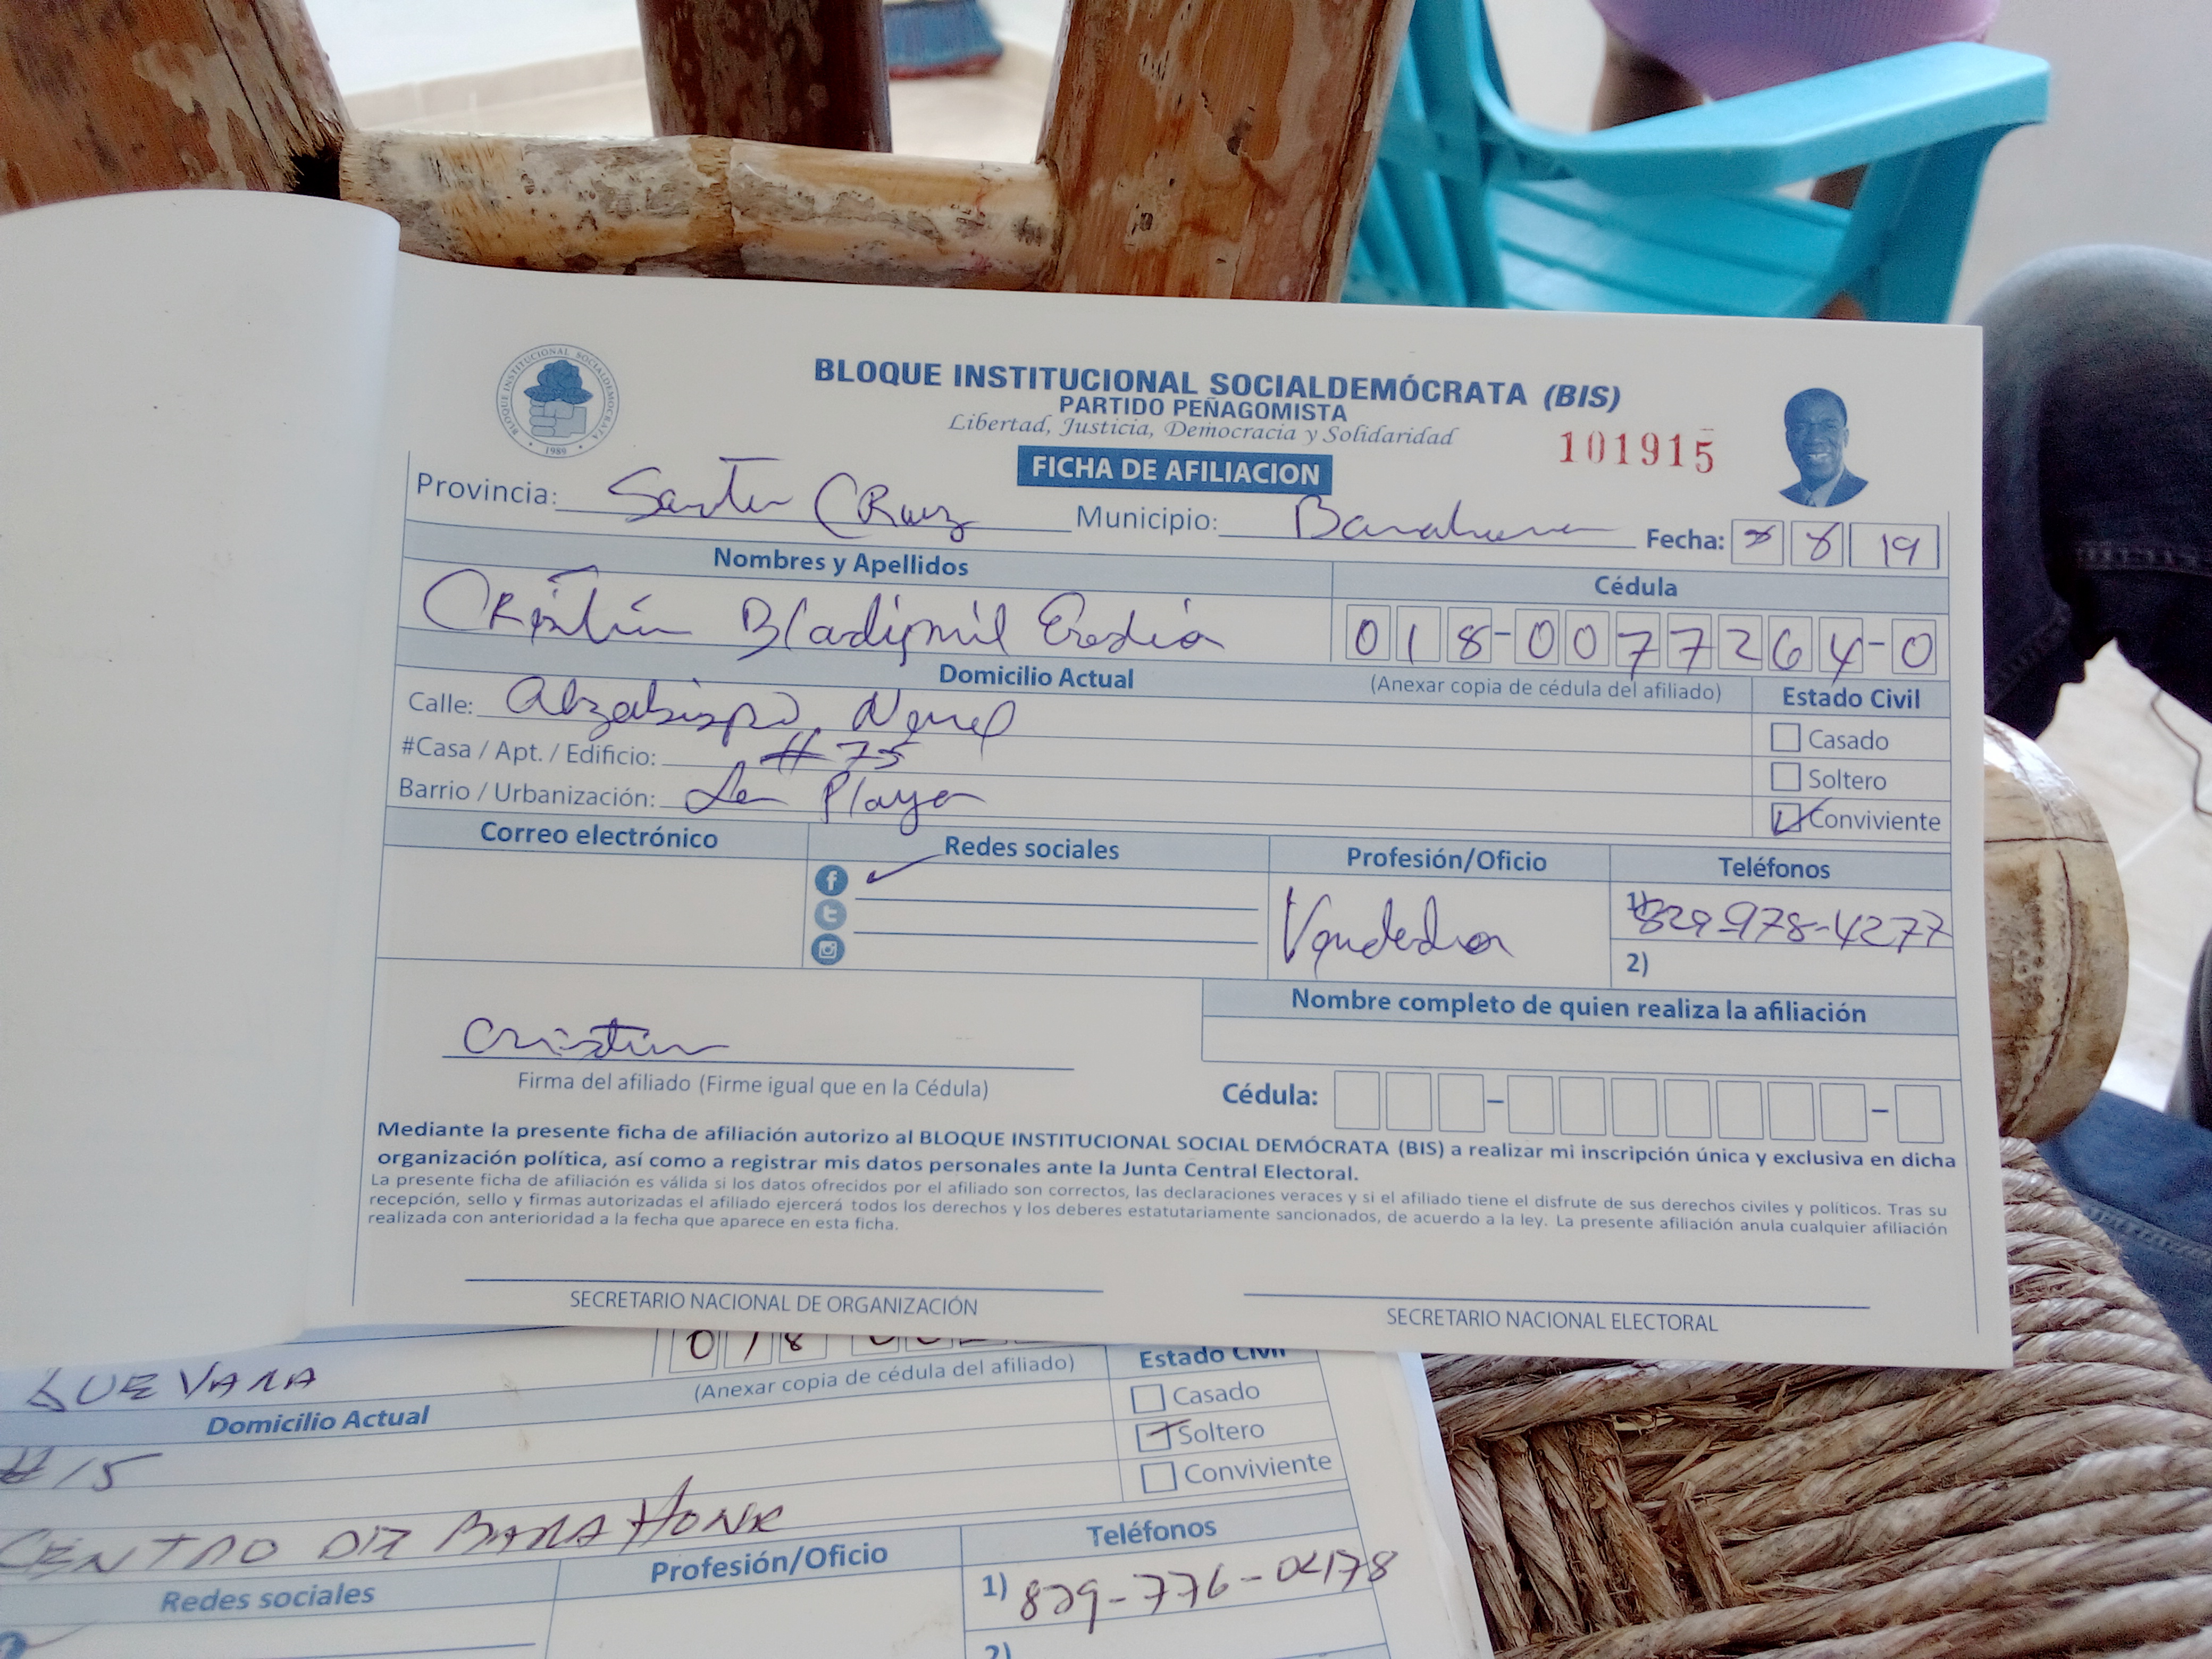 BLOQUE INSTITUCIONAL SOCIALDEMÓCRATA • 1989 •
BLOQUE INSTITUCIONAL SOCIALDEMÓCRATA (BIS)
PARTIDO PEÑAGOMISTA
Libertad, Justicia, Democracia y Solidaridad
101915
FICHA DE AFILIACION
Provincia: Santa CRuz Municipio: Barahona Fecha: 8 19
Nombres y Apellidos Cédula
CRistin Bladimil Eredia 018-0077264-0
Domicilio Actual (Anexar copia de cédula del afiliado) Estado Civil
Calle: Alzabispo Nouel
Casado
#Casa / Apt. / Edificio: #75
Soltero
Barrio / Urbanización: La Playa
Conviviente
Correo electrónico Redes sociales Profesión/Oficio Teléfonos
Vendedor 1) 829-978-4277
2)
Nombre completo de quien realiza la afiliación
Cristin
Firma del afiliado (Firme igual que en la Cédula)
Cédula:
Mediante la presente ficha de afiliación autorizo al BLOQUE INSTITUCIONAL SOCIAL DEMÓCRATA (BIS) a realizar mi inscripción única y exclusiva en dicha
organización política, así como a registrar mis datos personales ante la Junta Central Electoral.
La presente ficha de afiliación es válida si los datos ofrecidos por el afiliado son correctos, las declaraciones veraces y si el afiliado tiene el disfrute de sus derechos civiles y políticos. Tras su
recepción, sello y firmas autorizadas el afiliado ejercerá todos los derechos y los deberes estatutariamente sancionados, de acuerdo a la ley. La presente afiliación anula cualquier afiliación
realizada con anterioridad a la fecha que aparece en esta ficha.
SECRETARIO NACIONAL DE ORGANIZACIÓN SECRETARIO NACIONAL ELECTORAL
018
GUEVARA (Anexar copia de cédula del afiliado) Estado Civil
Domicilio Actual Casado
#15 Soltero
Conviviente
CENTRO DE BARAHONA
Redes sociales Profesión/Oficio Teléfonos
1) 829-776-0478
2)